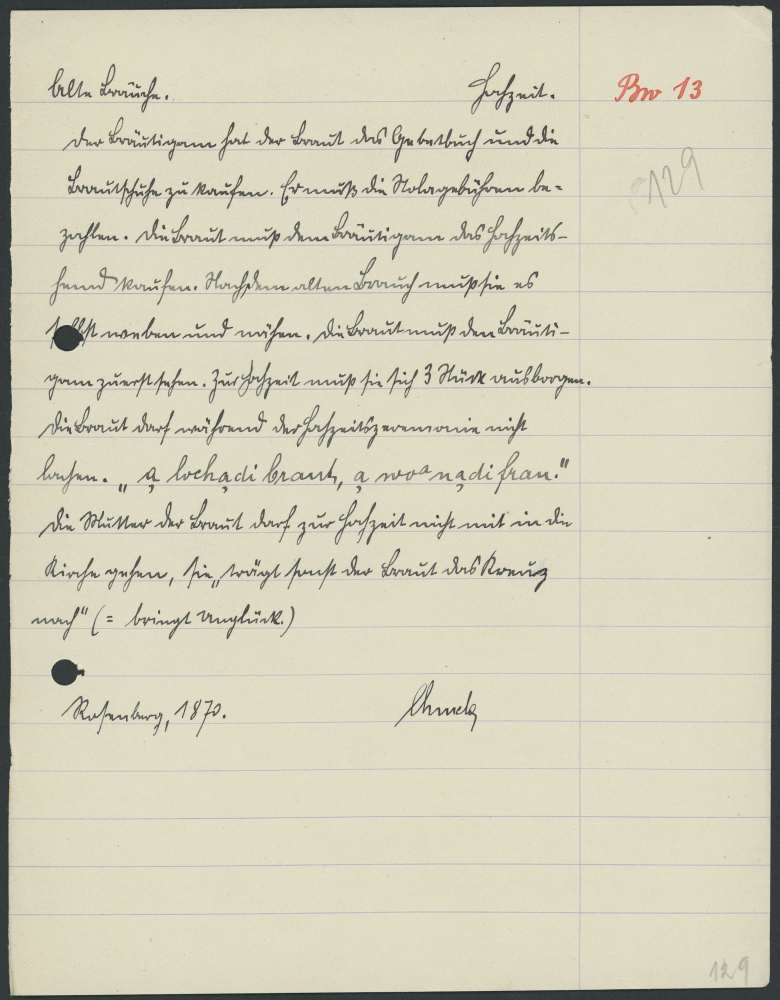 Alte Bräuche. Hochzeit. Br 13
Der Bräutigam hat der Braut das Gebetbuch und die
129
Brautschuhe zu kaufen. Er muß die Stolagebühren be-
zahlen. Die Braut muß dem Bräutigam das Hochzeits-
hemd kaufen. Nach dem alten Brauch muß sie es
selbst weben und nähen. Die Braut muß den Bräuti-
gam zuerst sehen. Zur Hochzeit muß sie sich 3 Stück ausborgen.
Die Braut darf während der Hochzeitszeremonie nicht
lachen. „a lochadi braut, a woanadi frau."
Die Mutter der Braut darf zur Hochzeit nicht mit in die
Kirche gehen, sie „trägt sonst der Braut das Kreuz
nach" (= bringt Unglück.)
Rosenberg, 1870.
129